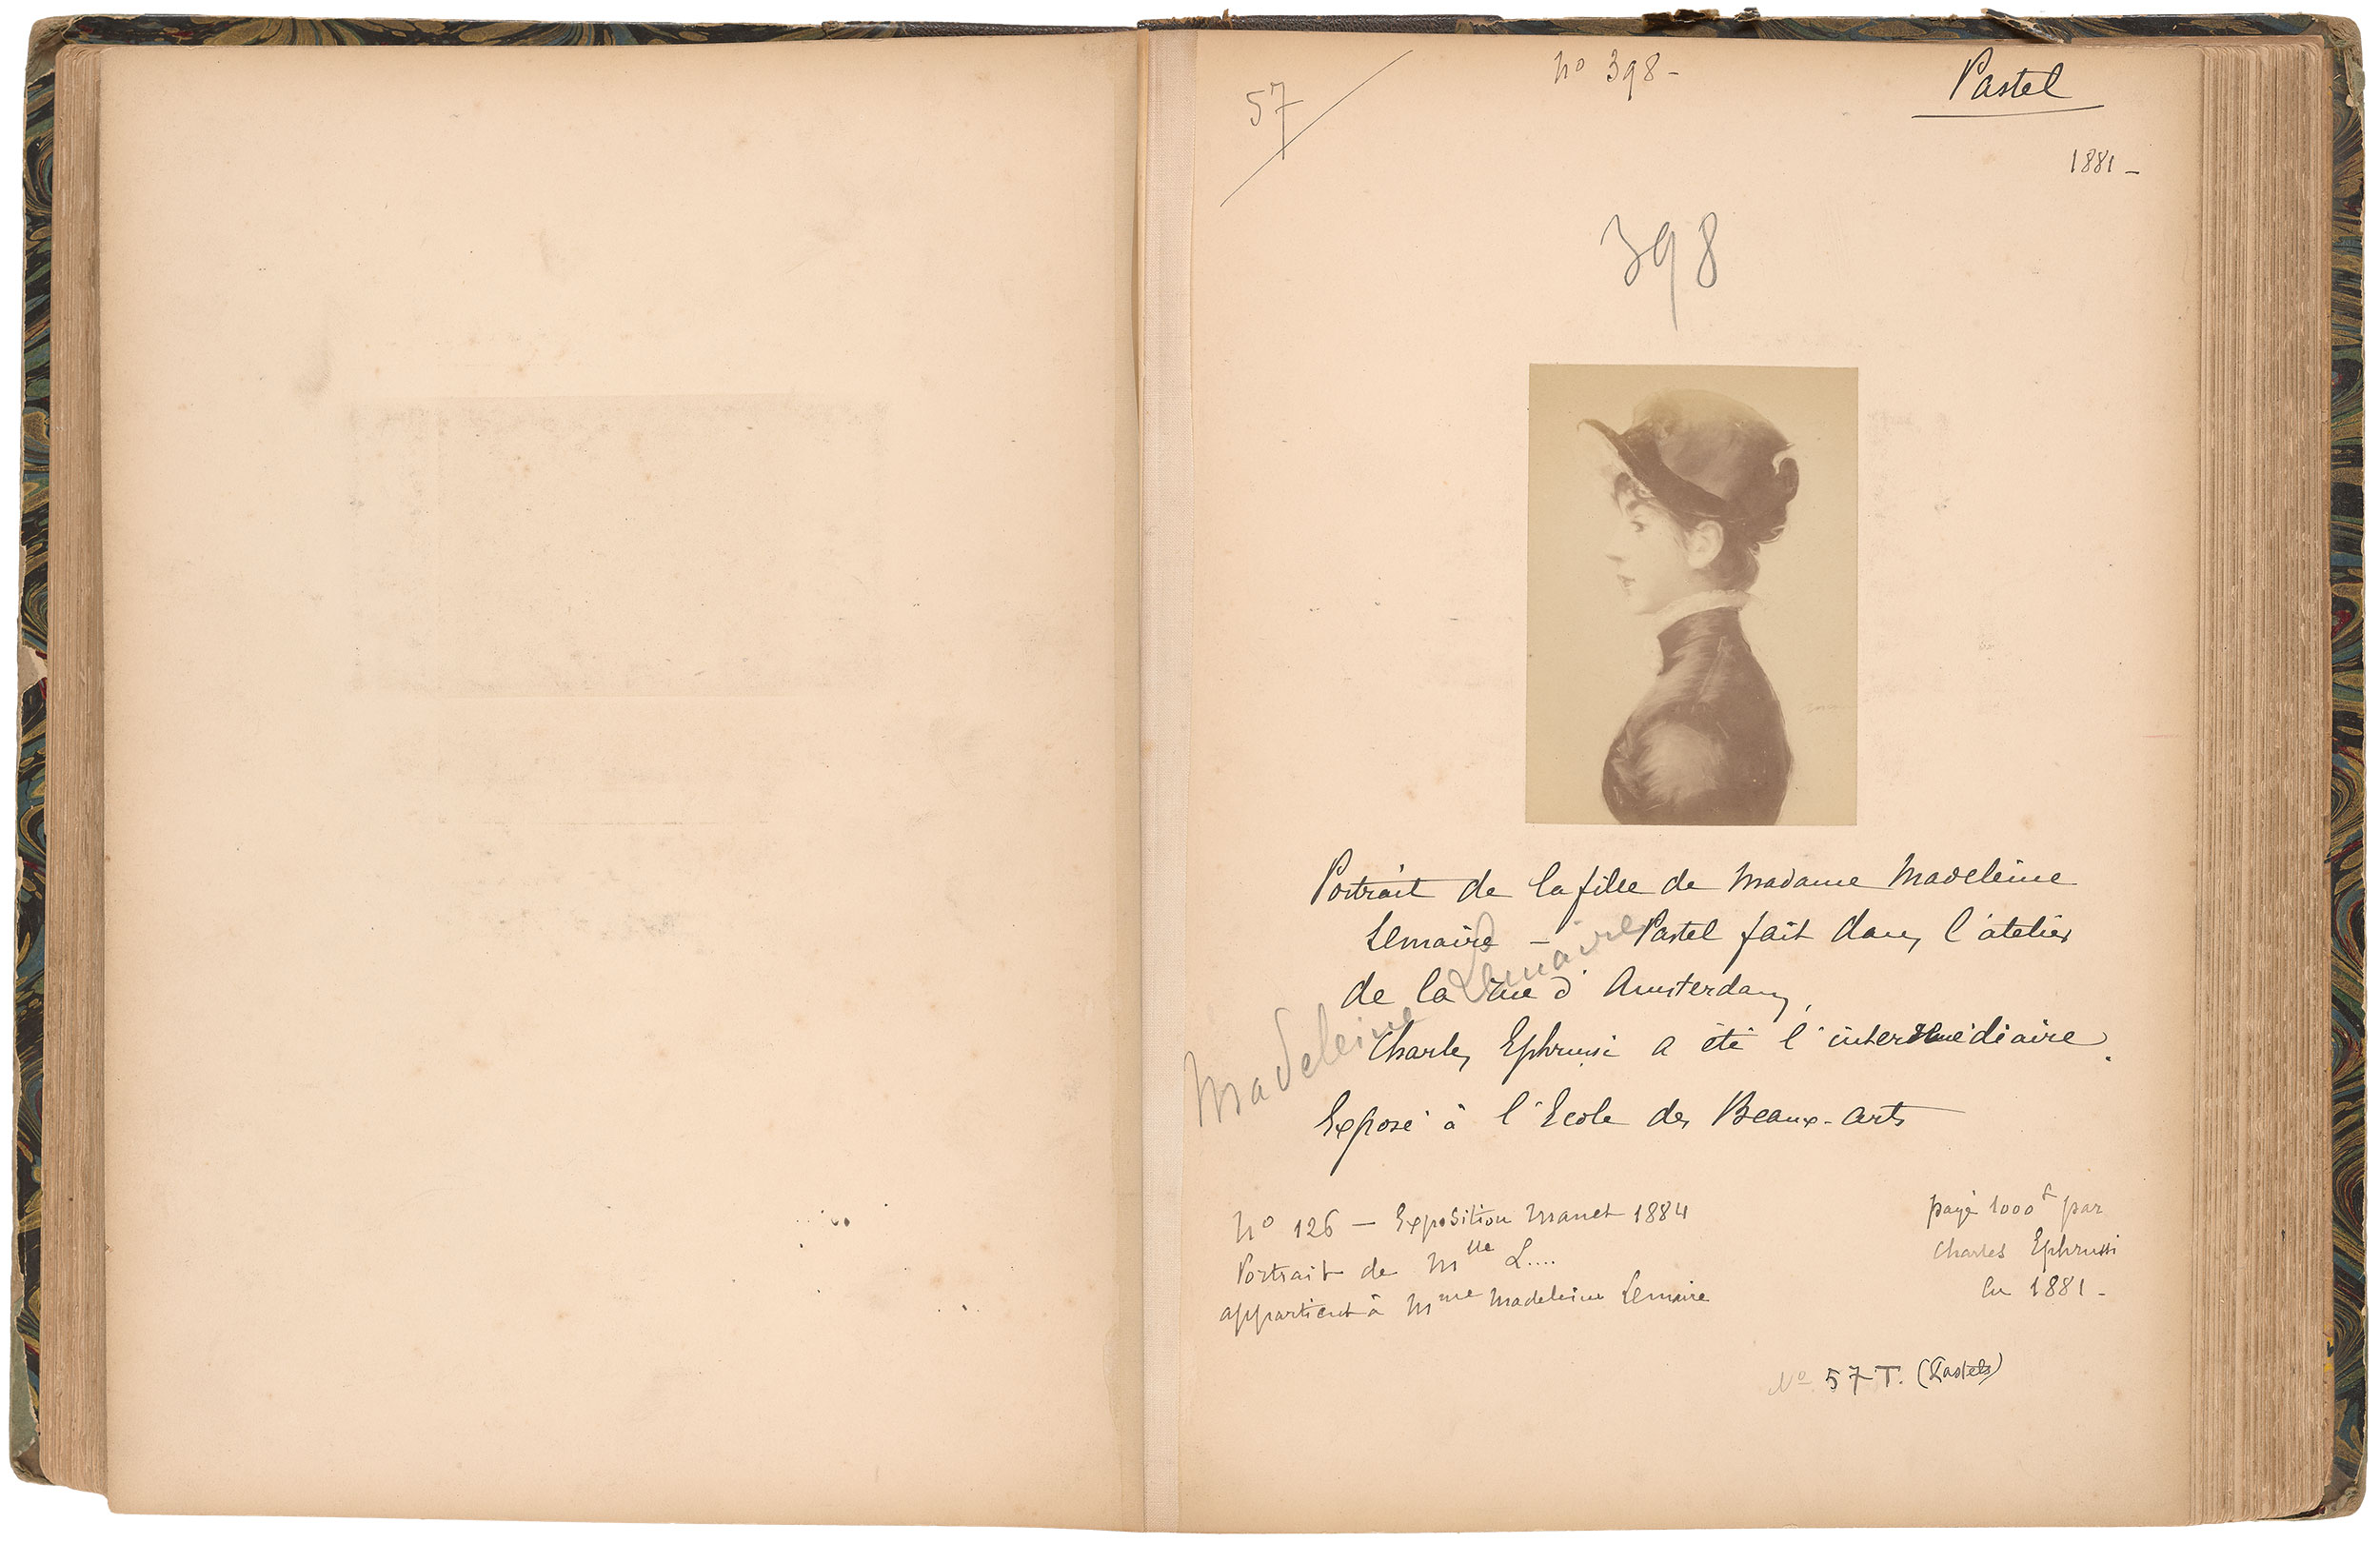 57
No 398 -
Pastel
1881 -
398
Portrait de la fille de Madame Madeleine
Lemaire - Pastel fait dans l'atelier
de la rue d'Amsterdam,
Charles Ephrussi a été l'intermédiaire.
Madeleine Lemaire
Exposé à l'Ecole des Beaux-Arts
No 126 - Exposition Manet 1884
Portrait de Mlle L....
appartient à Mme Madeleine Lemaire
payé 1000f par
Charles Ephrussi
en 1881 -
No 57 T. (Pastels)